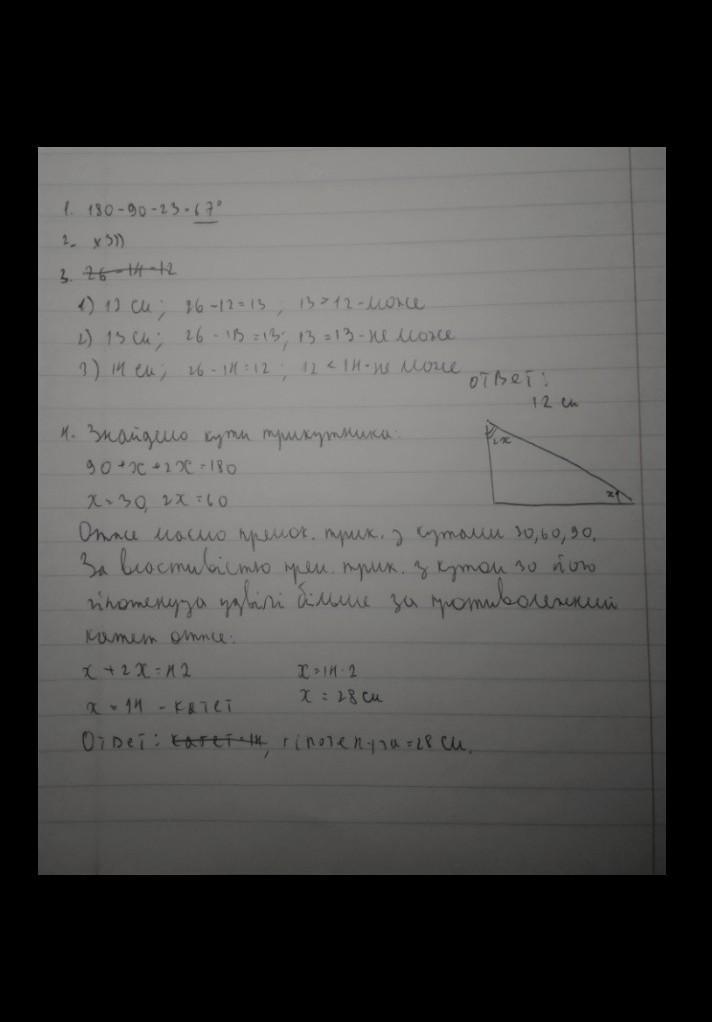 1. 180-90-23=67°
2. x3))
3. 26-14=12
1) 12 см; 26-12=13; 13>12-може
2) 13 см; 26-13=13; 13=13-не може
3) 14 см; 26-14=12; 12<14-не може
ответ:
12 см
4. Знайдемо кути трикутника:
2x
90+x+2x=180
x
x=30, 2x=60
Отже маємо прямок. трик. з кутами 30,60,90.
За властивістю прям. трик. з кутом 30 його
гіпотенуза удвічі більше за противолежний
катет отже:
x+2x=42 x=14·2
x=14 - катет x=28см
Ответ: катет=14, гіпотенуза=28 см.